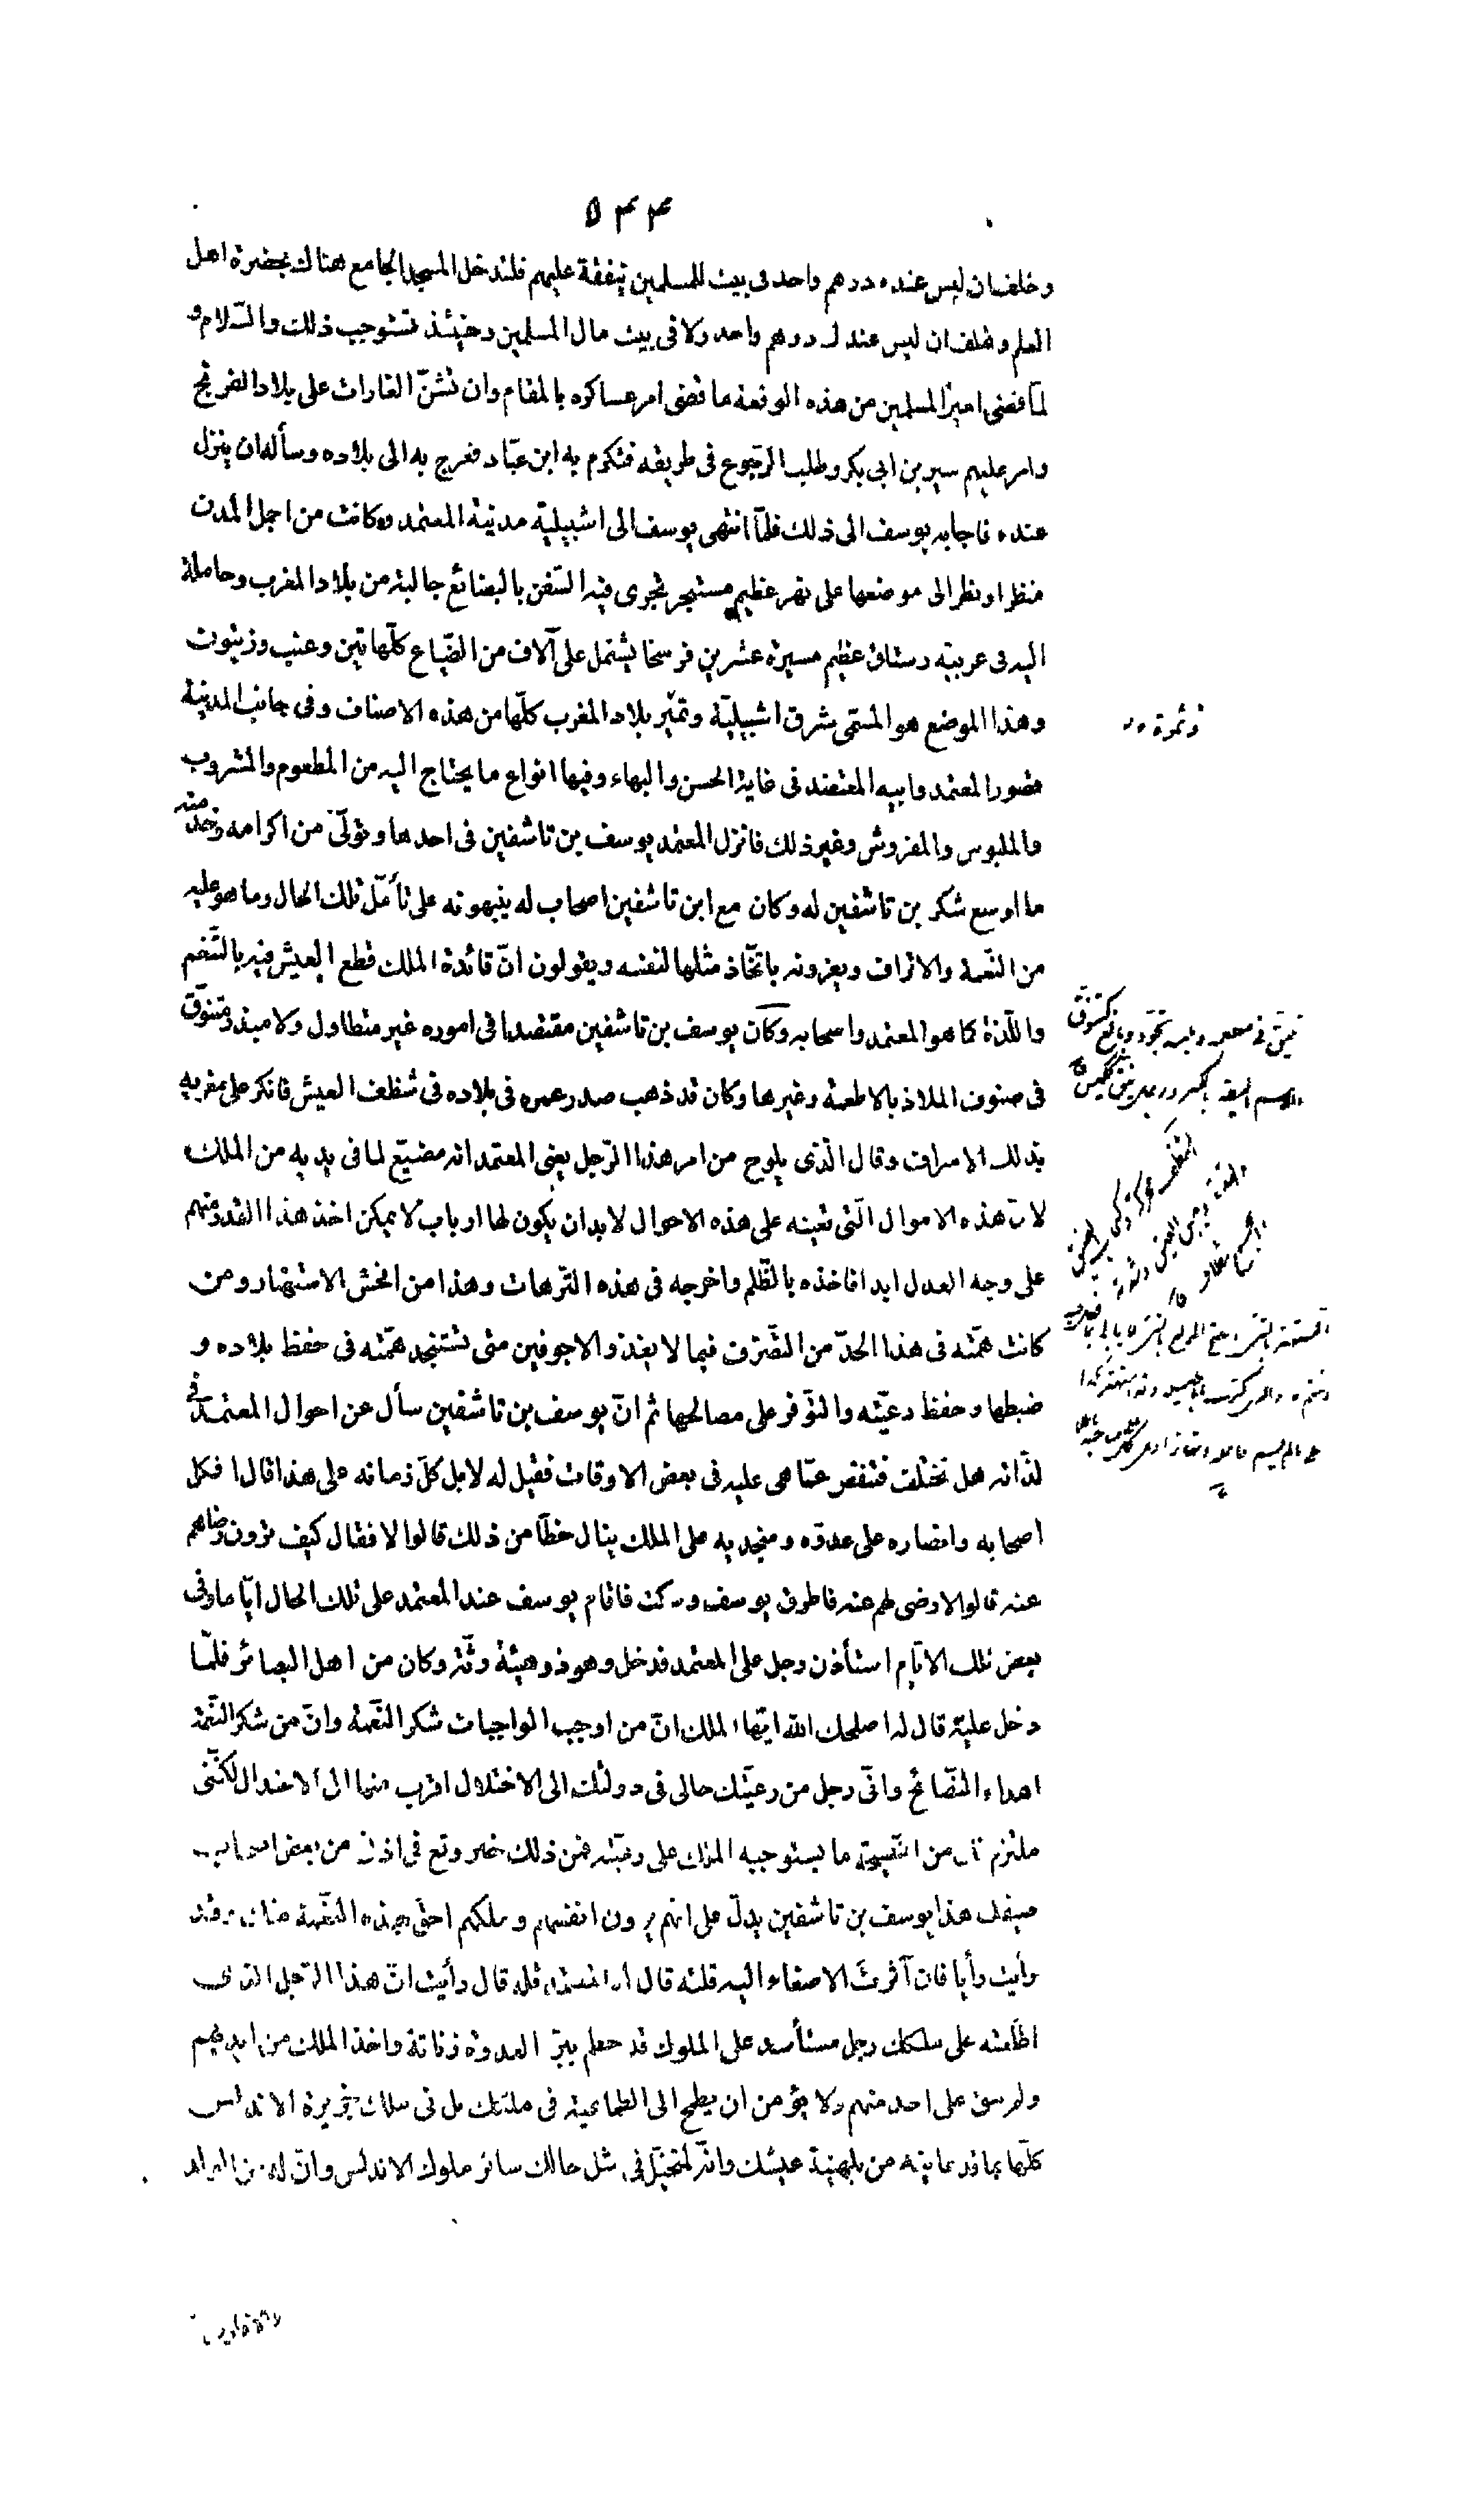 ٥٣٣
وحلف ان ليس عنده درهم واحد فى بيت للمسلمين ينفقة عليهم فلتدخل المسجد الجامع هناك بحضرة اهل
العلم وتحلف ان ليس عندك درهم واحد ولا فى بيت مال المسلمين وحينئذ تستوجب ذلك والسّلام و
لمّا قضى امير المسلمين من هذه الوقعة ما قضى امر عساكره بالمقام وان تشنّ الغارات على بلاد الفرنج
وامر عليهم سير بن ابى بكر وطلب الرّجوع فى طريقه فتكرم به ابن عبّاد فعرج به الى بلاده وسأله ان ينزل
عنده فاجابه يوسف الى ذلك فلمّا انتهى يوسف الى اشبيليّة مدينة المعتمد وكانت من اجمل المدن
منظرا ونظر الى موضعها على نهر عظيم مستبحر تجرى فيه السّفن بالبضائع جالبة من بلاد المغرب وحاملة
اليه فى غربيّه رستاق عظيم مسيرة عشرين فرسخا يشتمل على آلاف من الضّياع كلّها تين وعنب وزيتون
وهذا الموضع هو المسمّى شرق اشبيليّة وتمير بلاد المغرب كلّها من هذه الاصناف وفى جانب المدينة
قصور المعتمد وابيه المعتضد فى غاية الحسن والبهاء وفيها انواع ما يحتاج اليه من المطعوم والمشروب
والملبوس والمفروش وغير ذلك فانزل المعتمد يوسف بن تاشفين فى احدها وتولّى من اكرامه وخدمته
ما اوسع شكر بن تاشفين له وكان مع ابن تاشفين اصحاب له ينبهونه على تأمّل تلك الحال وما هو عليه
من النّعمة والاتراف ويغرونه باتّخاذ مثلها لنفسه ويقولون انّ فائدة الملك قطع العيش فيه بالتّنعّم
واللّذة كما هو المعتمد واصحابه وكان يوسف بن تاشفين مقتصدا فى اموره غير متطاول ولا مبذر متنوّق
فى صنوف الملاذ بالاطعمة وغيرها وكان قد ذهب صدر عمره فى بلاده فى شظف العيش فانكر على مغريه
بذلك الاسراف وقال الّذى يلوح من امر هذا الرّجل يعنى المعتمد انه مضيّع لما فى يديه من الملك
لانّ هذه الاموال الّتى تعينه على هذه الاحوال لابد ان يكون لها ارباب لا يمكن اخذ هذا القدر منهم
على وجه العدل ابدا فاخذه بالظّلم واخرجه فى هذه التّرهات وهذا من افحش الاستهتار ومن
كانت همّته فى هذا الحدّ من التّصّرف فيما لا يعدو الاجوفين متى تستنجد همّته فى حفظ بلاده و
ضبطها وحفظ رعيّته والتوّفر على مصالحها ثم انّ يوسف بن تاشفين سأل عن احوال المعتمد فى
لذّاته هل تختلف فتنقص عمّا هى عليه فى بعض الاوقات فقيل له لا بل كلّ زمانه على هذا قال افكل
اصحابه وانصاره على عدوّه ومنجديه على الملك ينال حظّا من ذلك قالوا لا فقال كيف ترون رضاهم
عنه قالوا لا رضى لهم عنه فاطرق يوسف وسكت فاقام يوسف عند المعتمد على تلك الحال ايّاما وفى
بعض تلك الايّام استأذن رجل على المعتمد فدخل وهو ذو هيئة رثّة وكان من اهل البصائر فلمّا
دخل عليه قال له اصلحك الله ايّها الملك انّ من اوجب الواجبات شكر النّعمة وانّ من شكر النّعمة
اهداء النّصائح وانّى رجل من رعيّتك حالى فى دولتك الى الاختلال اقرب منها الى الاعتدال لكنّنى
ملتزم من النّصيحة ما يستوجبه الملك على رعيّته فمن ذلك خبر وقع فى اذنى من بعض اصحاب
ضيفك هذا يوسف بن تاشفين يدلّ على انهم يرون انفسهم وملكهم احقّ بهذه النّعمة منك وقد
رأيت رأيا فان آثرت الاصغاء اليه قلته قال له المعتمد قله قال رأيت انّ هذا الرّجل الذى
اطلعته على ملكك رجل مستأسد على الملوك قد حطم ببرّ العدوة زناتة واخذ الملك من ايديهم
ولم يبق على احد منهم ولا يؤمن ان يطمح الى الطماعية فى ملكك بل فى ملك جزيرة الاندلس
كلّها بما قد عاينه من بلهنية عيشك وانّه لمتخيّل فى مثل حالك سائر ملوك الاندلس وانّ له من الولد
وثمرة